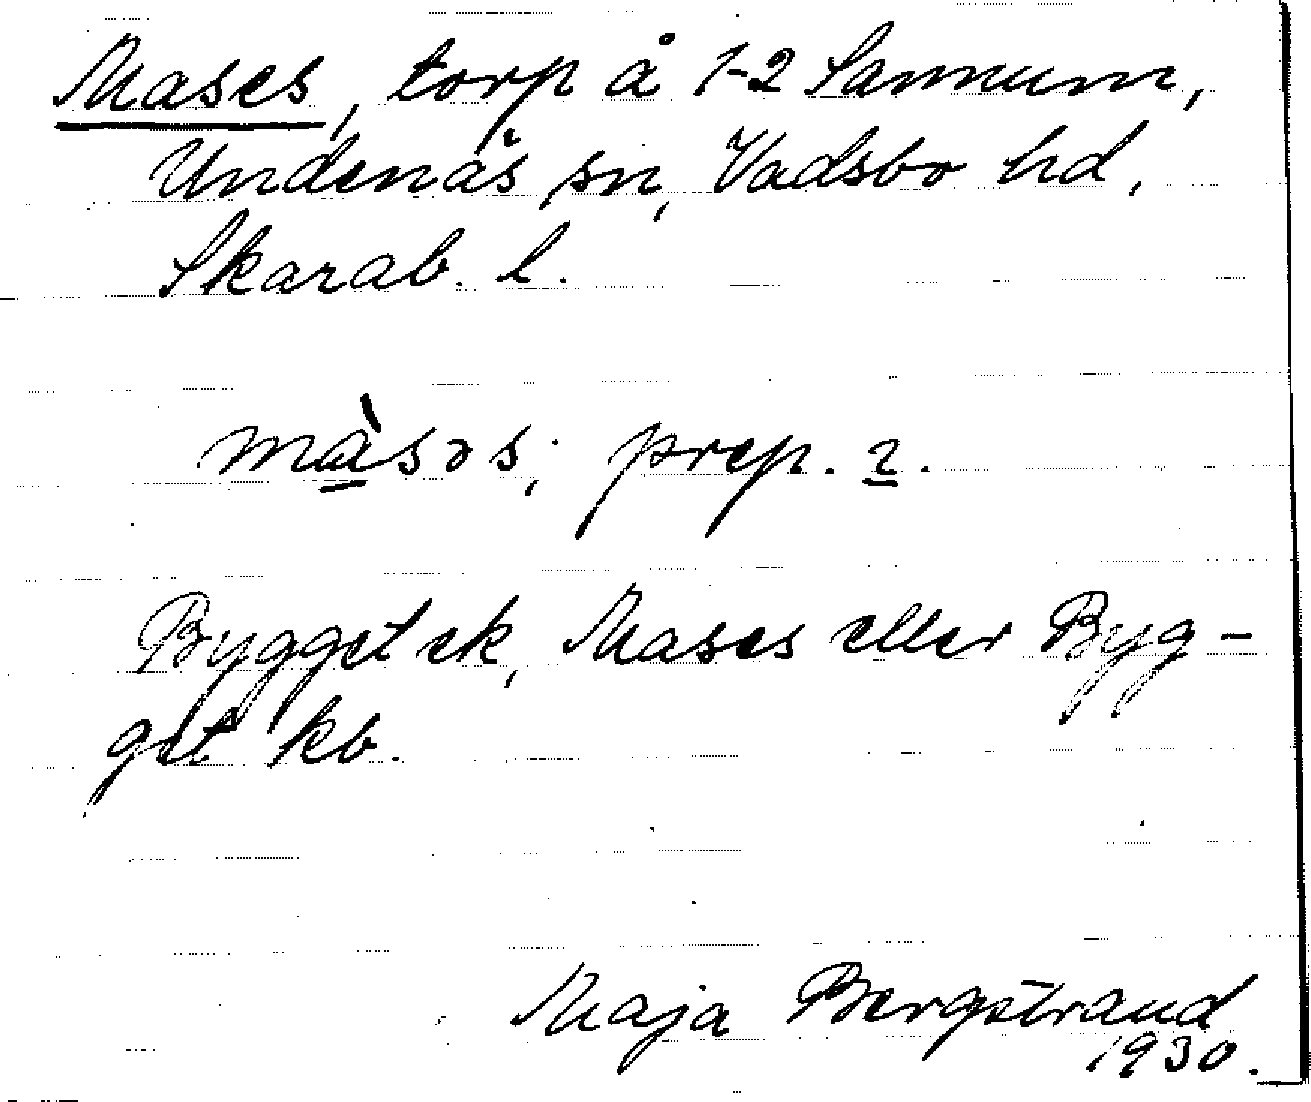 Mases, torp å 1-2 Sannum,
Undenäs sn, Vadsbo hd,
Skarab. l.
mà̱səs; prep. ɪ.
Bygget ek, Mases eller Byg-
get kb.
Maja Bergstrand
1930.